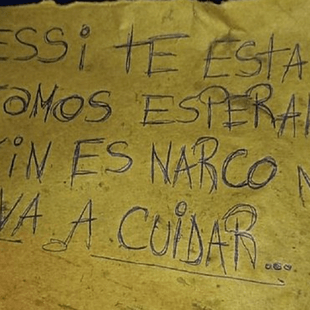 ESSI TE ESTA
TAMOS ESPERAN
KIN ES NARCO N
VA A CUIDAR...